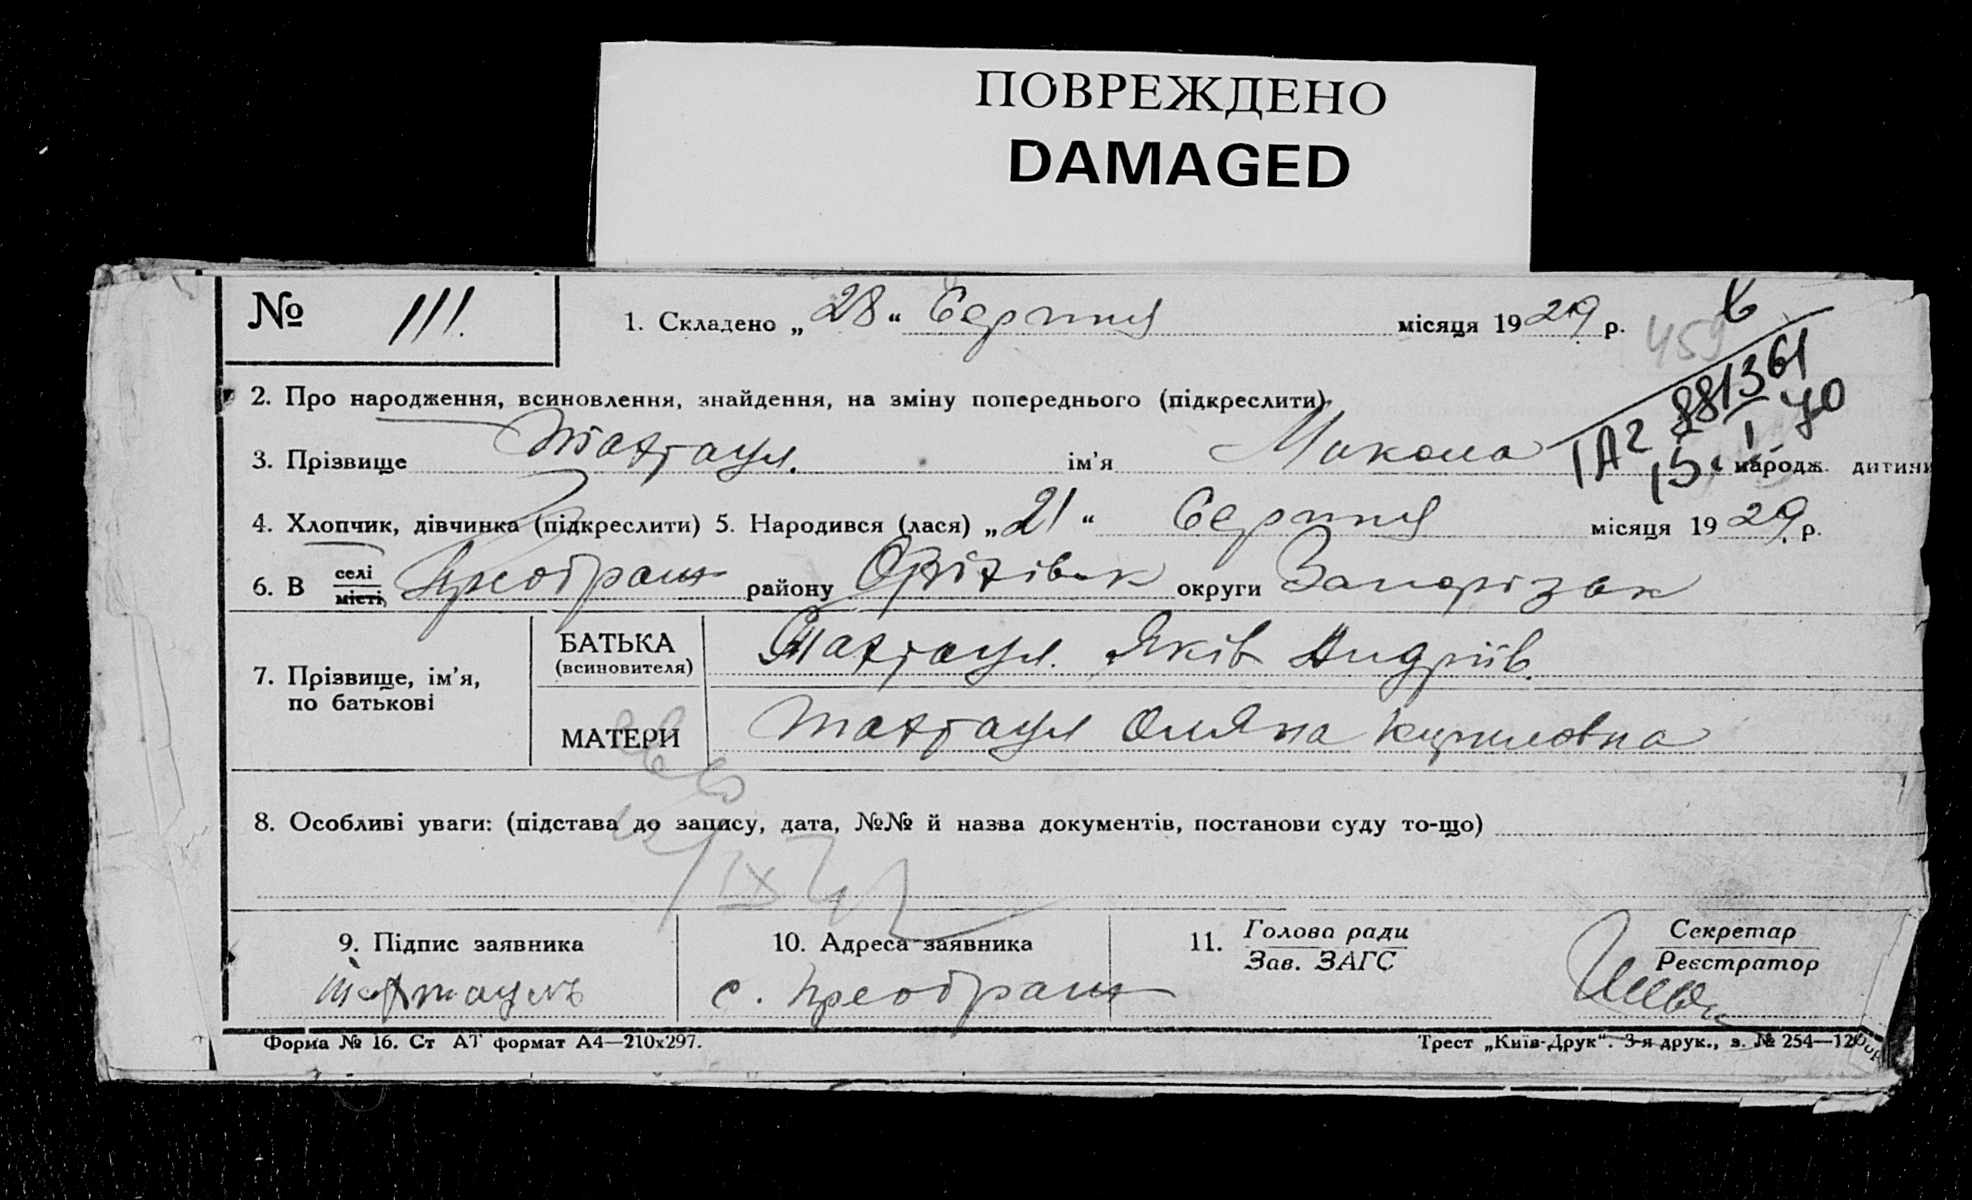 ПОВРЕЖДЕНО
DAMAGED
№ 111.
1. Складено „ 28 “ Серпня місяця 1929 р.
459
ІА2 881361
15. I 70
2. Про народження, всиновлення, знайдення, на зміну попереднього (підкреслити)
3. Прізвище Таттаул. ім'я Микола народж. дитини
4. Хлопчик, дівчинка (підкреслити) 5. Народився (лася) „ 21 “ Серпня місяця 1929 р.
6. В селі
місті, Преображ району Оріхівськ округи Запорізьк
7. Прізвище, ім'я,
по батькові
БАТЬКА
(всиновителя)
Таттаул. Яків Андріїв.
МАТЕРИ
Таттаул Оляна Кириловна
8. Особливі уваги: (підстава до запису, дата, №№ й назва документів, постанови суду то-що)
IX
9. Підпис заявника
Таттауль
10. Адреса заявника
с. Преображ
11. Голова ради
Зав. ЗАГС
Секретар
Реєстратор
Форма № 16. Ст АТ формат А4—210х297.
Трест „Київ-Друк“. 3-я друк., з. № 254—12